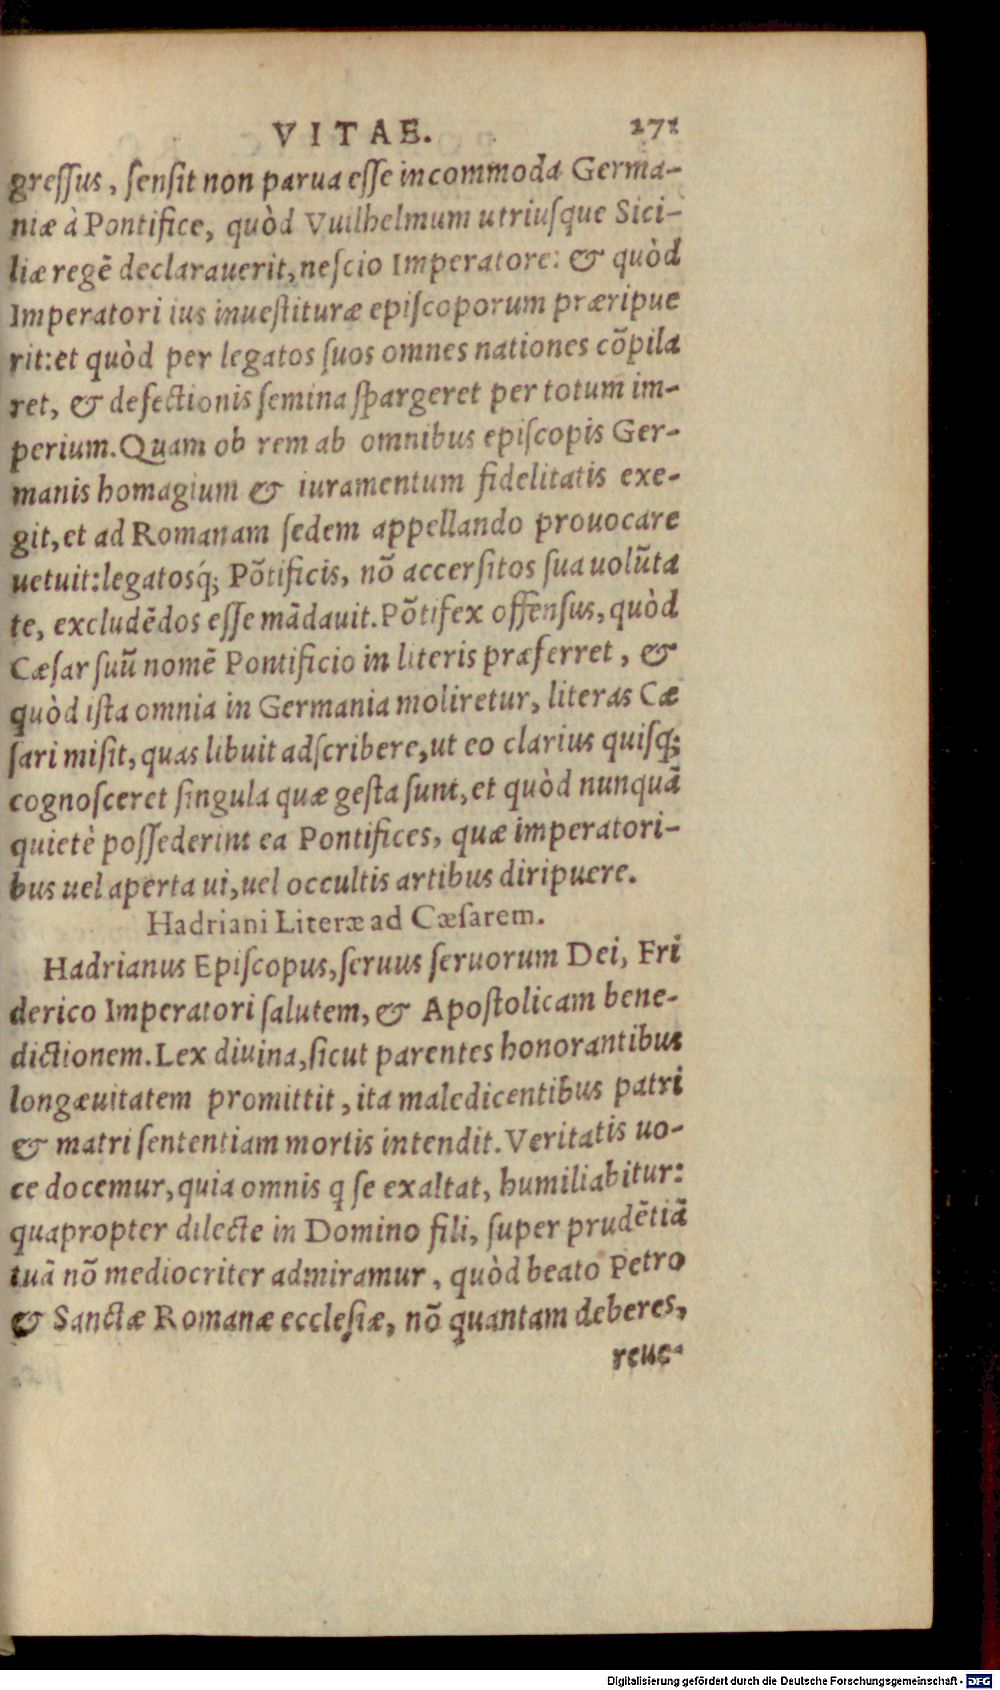 VITAE. 271
greſſus, ſenſit non parua eſſe incommoda Germa-
niæ à Pontifice, quòd Vuilhelmum utriuſque Sici-
liæ regē declarauerit, neſcio Imperatore: & quòd
Imperatori ius inueſtituræ epiſcoporum præripue
rit: et quòd per legatos ſuos omnes nationes cōpila
ret, & defectionis ſemina ſpargeret per totum im-
perium. Quam ob rem ab omnibus epiſcopis Ger-
manis homagium & iuramentum fidelitatis exe-
git, et ad Romanam ſedem appellando prouocare
uetuit: legatosq́; Pōtificis, nō accerſitos ſua uolūta
te, excludēdos eſſe mādauit. Pōtifex offenſus, quòd
Cæſar ſuū nomē Pontificio in literis præferret, &
quòd iſta omnia in Germania moliretur, literas Cæ
ſari miſit, quas libuit adſcribere, ut eo clarius quiſq;
cognoſceret ſingula quæ geſta ſunt, et quòd nunquā
quietè poſſederint ea Pontifices, quæ imperatori-
bus uel aperta ui, uel occultis artibus diripuere.
Hadriani Literæ ad Cæſarem.
Hadrianus Epiſcopus, ſeruus ſeruorum Dei, Fri
derico Imperatori ſalutem, & Apoſtolicam bene-
dictionem. Lex diuina, ſicut parentes honorantibus
longæuitatem promittit, ita maledicentibus patri
& matri ſententiam mortis intendit. Veritatis uo-
ce docemur, quia omnis q ſe exaltat, humiliabitur:
quapropter dilecte in Domino fili, ſuper prudētiā
tuā nō mediocriter admiramur, quòd beato Petro
& Sanctæ Romanæ eccleſiæ, nō quantam deberes,
reue-
Digitalisierung gefördert durch die Deutsche Forschungsgemeinschaft - DFG